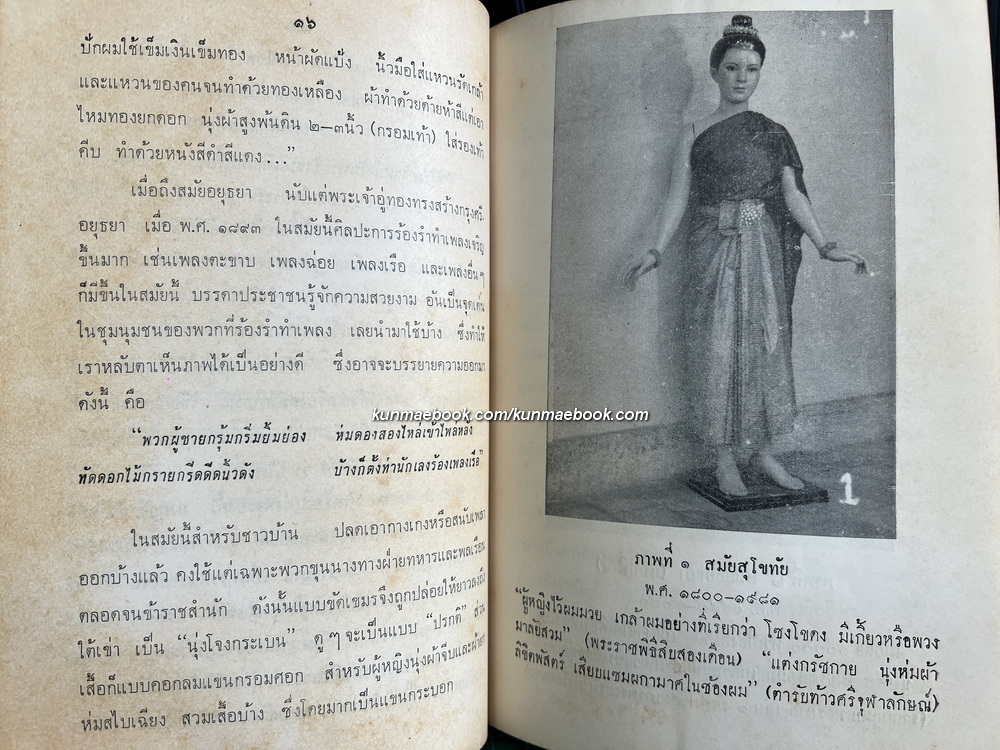 ๑๖
ปักผมใช้เข็มเงินเข็มทอง หน้าผัดแป้ง นิ้วมือใส่แหวนรัดเกล้า
และแหวนของคนจนทำด้วยทองเหลือง ผ้าทำด้วยด้ายห้าสีแต่เอา
ไหมทองยกดอก นุ่งผ้าสูงพ้นดิน ๒—๓นิ้ว (กรอมเท้า) ใส่รองเท้า
คีบ ทำด้วยหนังสีดำสีแดง...”
เมื่อถึงสมัยอยุธยา นับแต่พระเจ้าอู่ทองทรงสร้างกรุงศรี-
อยุธยา เมื่อ พ.ศ. ๑๘๙๓ ในสมัยนี้ศิลปะการร้องรำทำเพลงเจริญ
ขึ้นมาก เช่นเพลงตะขาบ เพลงฉ่อย เพลงเรือ และเพลงอื่นๆ
ก็มีขึ้นในสมัยนี้ บรรดาประชาชนรู้จักความสวยงาม อันเป็นจุดเด่น
ในชุมนุมชนของพวกที่ร้องรำทำเพลง เลยนำมาใช้บ้าง ซึ่งทำให้
เราหลับตาเห็นภาพได้เป็นอย่างดี ซึ่งอาจจะบรรยายความออกมา
ดังนี้ คือ
“พวกผู้ชายกรุ้มกริ่มยิ้มย่อง ห่มดองสองไหล่เข้าไพล่หลัง
ทัดดอกไม้กรายกรีดดีดนิ้วดัง บ้างก็ตั้งท่านักเลงร้องเพลงเรือ”
ในสมัยนี้สำหรับชาวบ้าน ปลดเอากางเกงหรือสนับเพลา
ออกบ้างแล้ว คงใช้แต่เฉพาะพวกขุนนางทางฝ่ายทหารและพลเรือน
ตลอดจนข้าราชสำนัก ดังนั้นแบบขัดเขมรจึงถูกปล่อยให้ยาวลงถึง
ใต้เข่า เป็น “นุ่งโจงกระเบน” ดูๆจะเป็นแบบ “ปรกติ” ส่วน
เสื้อก็แบบคอกลมแขนกรอมศอก สำหรับผู้หญิงนุ่งผ้าจีบและผ้ายก
ห่มสไบเฉียง สวมเสื้อบ้าง ซึ่งโดยมากเป็นแขนกระบอก
kunmaebook.com/kunmaebook.com
1
ภาพที่ ๑ สมัยสุโขทัย
พ.ศ. ๑๘๐๐-๑๙๘๑
“ผู้หญิงไว้ผมมวย เกล้าผมอย่างที่เรียกว่า โซงโขดง มีเกี้ยวหรือพวง
มาลัยสวม” (พระราชพิธีสิบสองเดือน) “แต่งกรัชกาย นุ่งห่มผ้า
ลิขิตพัสตร์ เสียบแซมผกามาศในซ้องผม” (ตำรับท้าวศรีจุฬาลักษณ์)